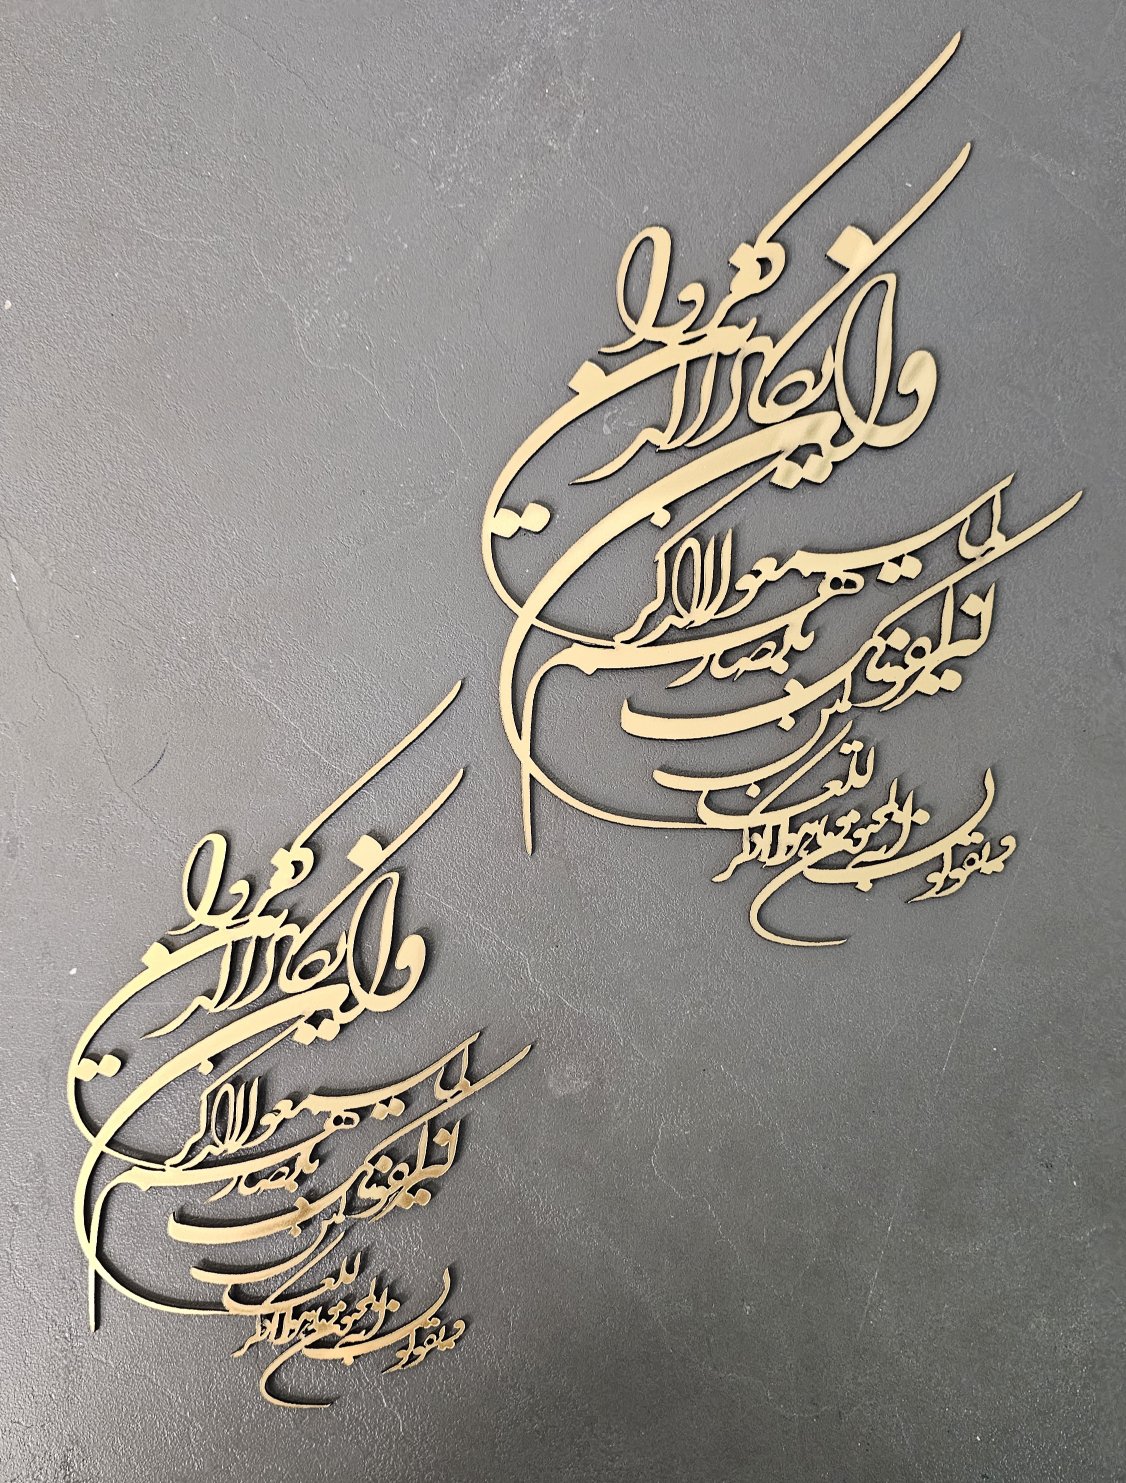 وان یکاد الذین کفروا
لیزلقونک بابصارهم لما سمعوا الذکر
و یقولون انه لمجنون و ما هو الا ذکر للعالمین
وان یکاد الذین کفروا
لیزلقونک بابصارهم لما سمعوا الذکر
و یقولون انه لمجنون و ما هو الا ذکر للعالمین